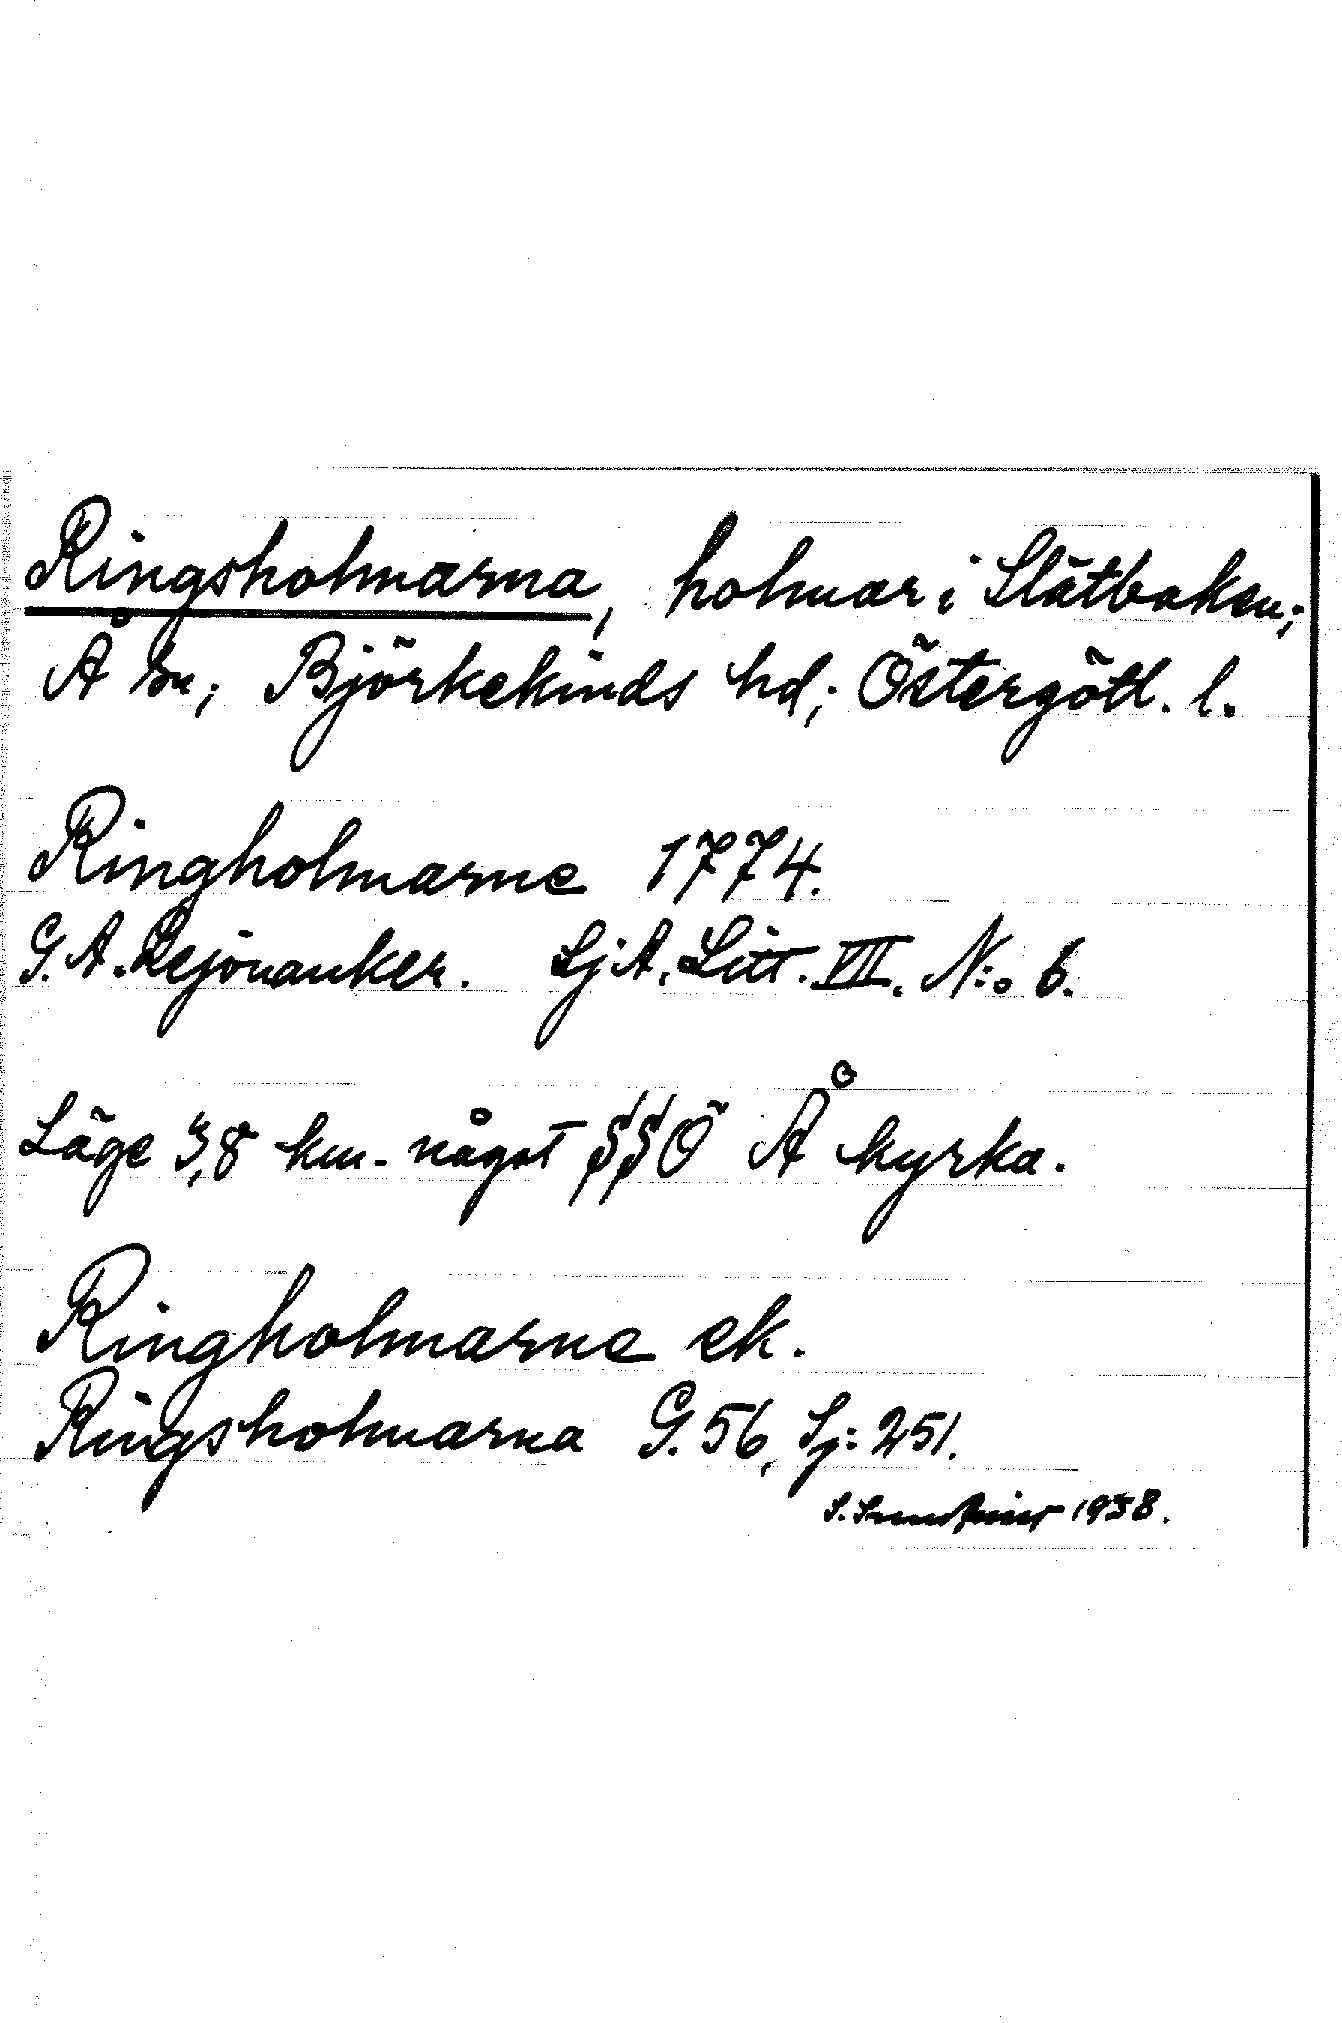 Ringsholmarna, holmar i Slätbaken;
Å sn; Björkekinds hd; Östergötl. l.
Ringholmarne 1774.
G. A. Lejonanker. LjA, Litt. VII. N:o 6.
Läge 3,8 km. något SSÖ Å kyrka.
Ringholmarne ek.
Ringsholmarna G. 56, Sj: 251.
S. 1938.